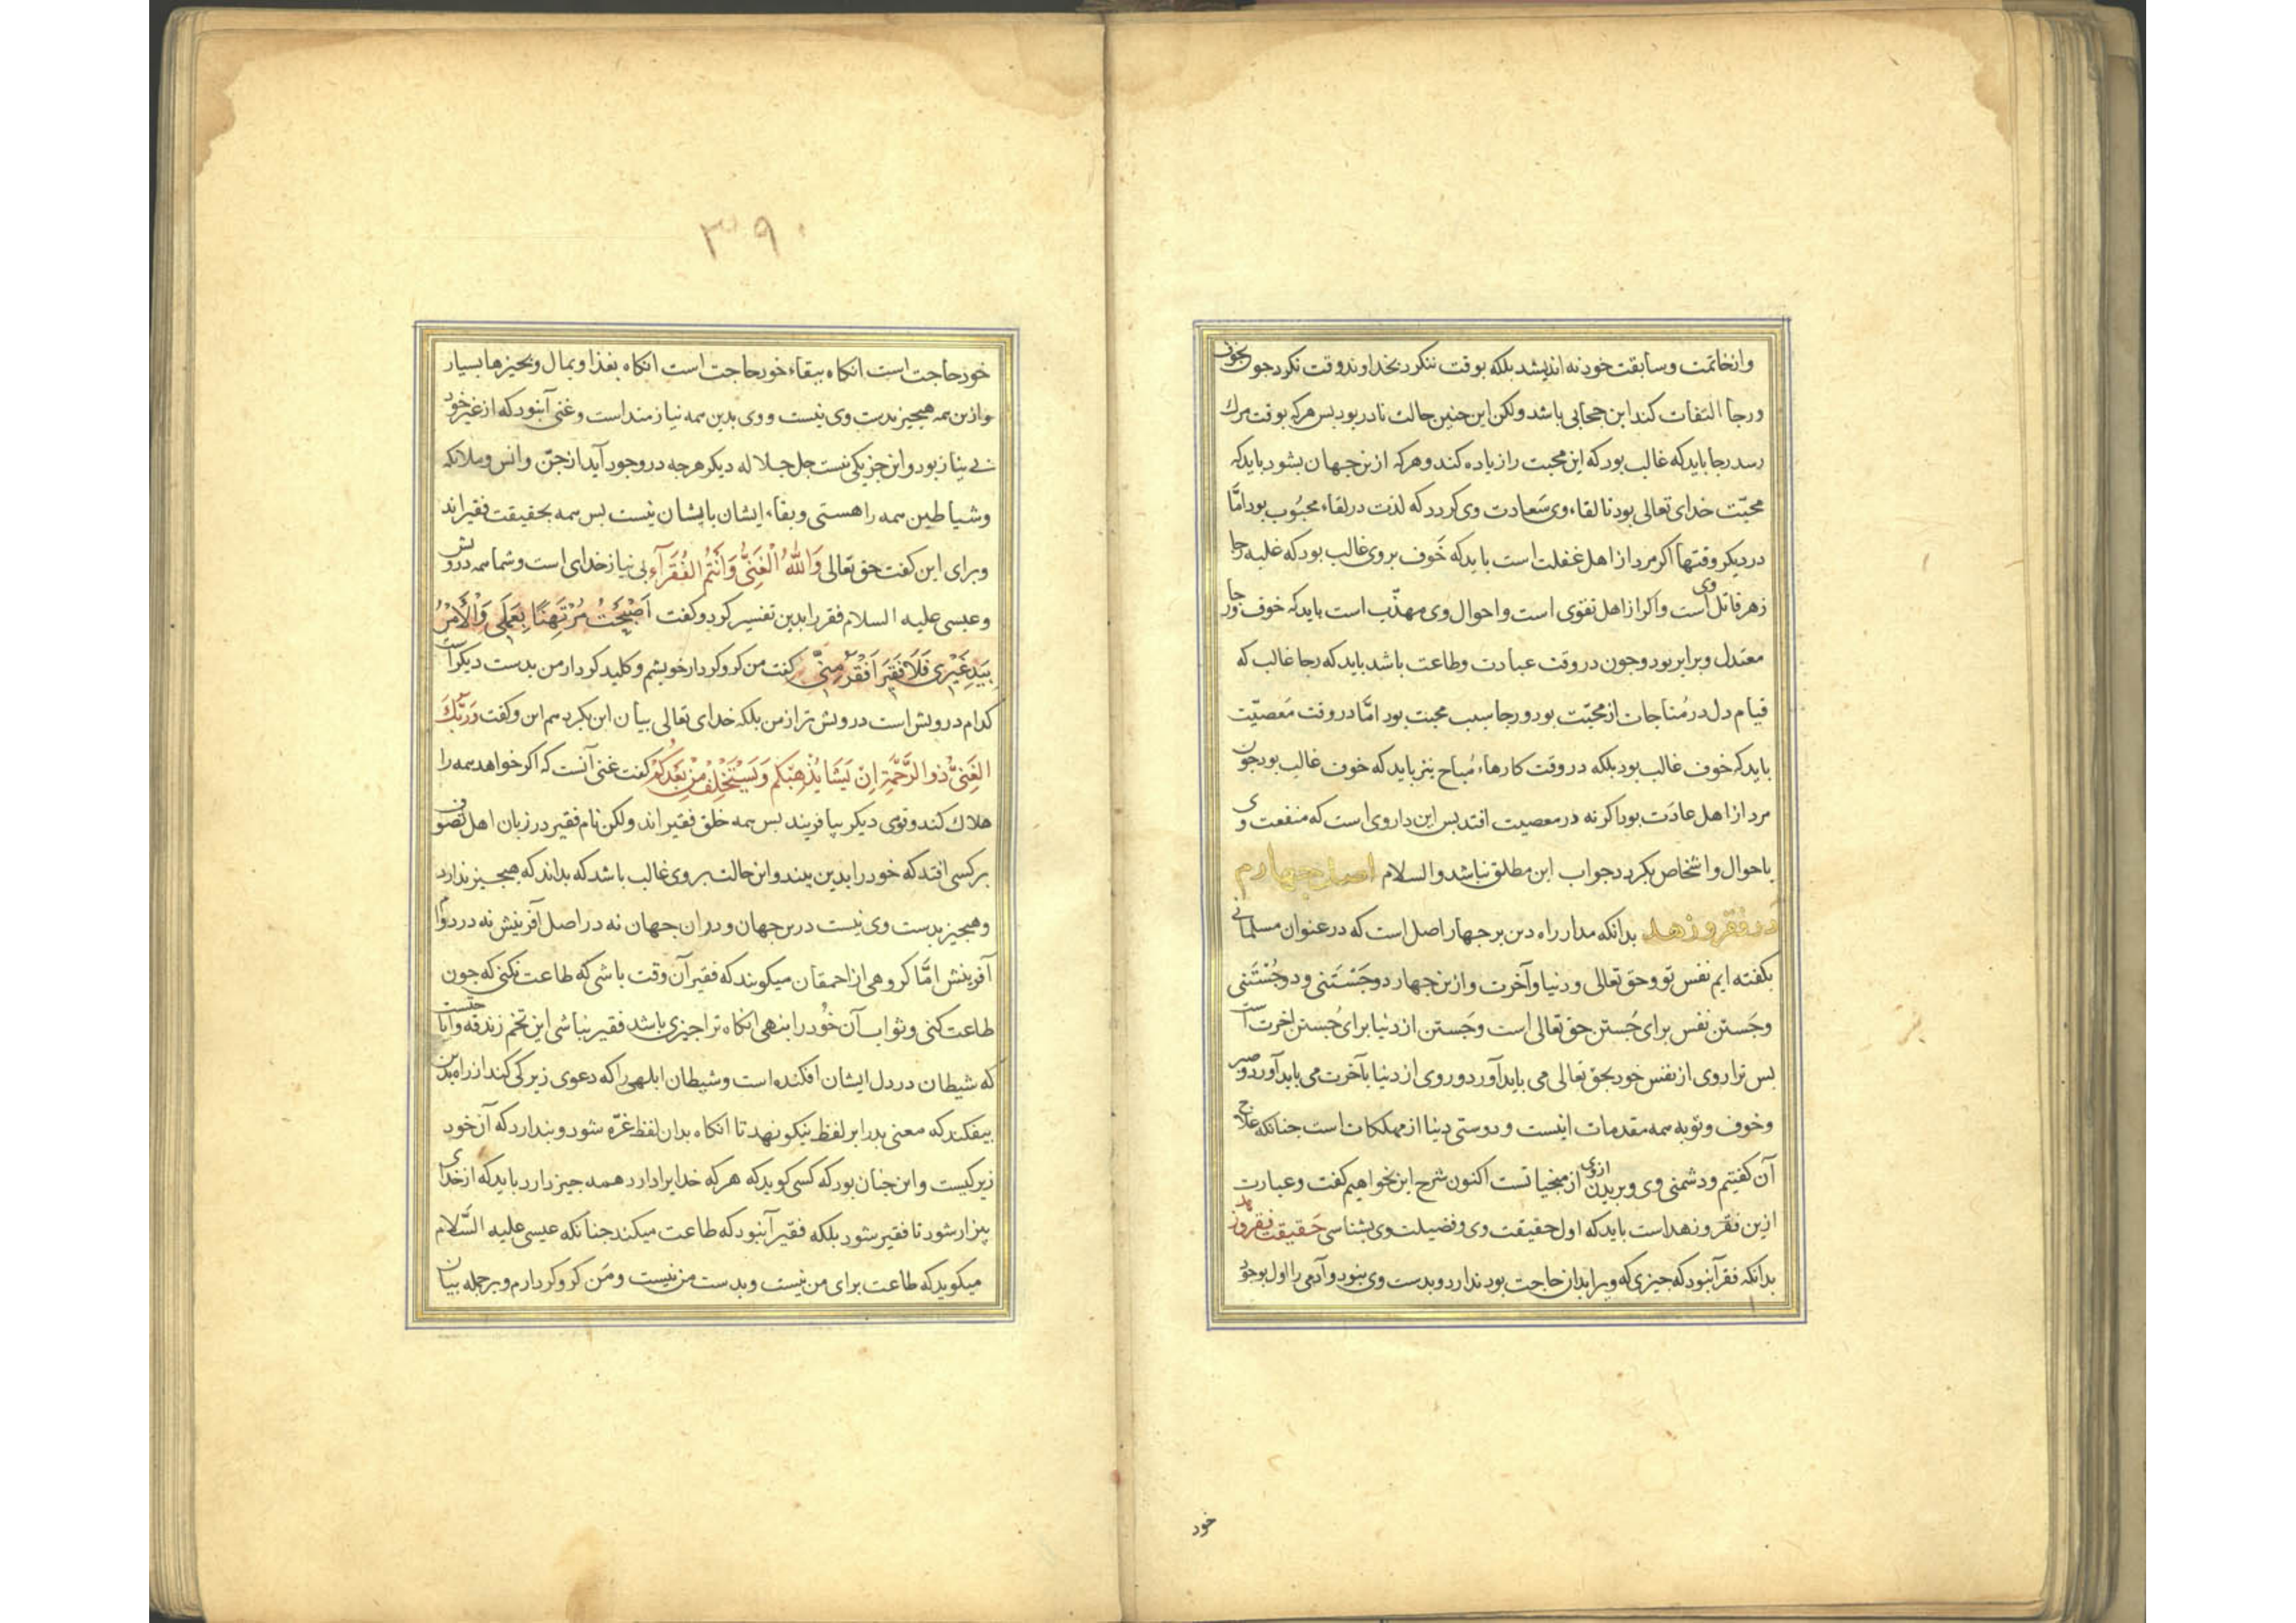 واز خاتمت و سابقت خود نه اندیشد بلکه بوقت ننکرد بخداوند وقت نکرد جون بخوف
ورجا التفات کند این حجابی باشد ولکن این جنین حالت نادر بود بس هرکه بوقت مرک
رسد رجا باید که غالب بود که این محبت را زیاده کند و هرکه ازین جهان بشود باید که
محبّت خدای تعالی بود تا لقاء وی سَعادت وی کردد که لذت در لقاء محبُوب بود امَّا
در دیکر وقتها اکر مرد از اهل غفلت است باید که خَوف بر وی غالب بود که غلبه رجا
زهر قاتل وی است واکر از اهل تقوی است و احوال وی مهذّب است باید که خوف ورجا
معتدل و برابر بود و جون در وقت عبادت و طاعت باشد باید که رجا غالب که
قیام دل در مُناجات از محبّت بود و رجا سبب محبت بود امَّا در وقت مَعصیّت
باید که خوف غالب بود بلکه در وقت کارهاء مُباح نیز باید که خوف غالب بود جون
مرد از اهل عادَت بود اکر نه در معصیت افتد بس این داروی است که منفعت وی
باحوال و اشخاص بکردد جواب این مطلق نباشد والسلام اصل جهارم
در فقر و زهد بدانکه مدار راه دین بر جهار اصل است که در عنوان مسلمانی
بکفته ایم نفس تو و حق تعالی و دنیا و آخرت و ازین جهار دو جَسْتَنی و دو جُسْتَنی
وجَستن نفس برای جُستن حق تعالی است وجَستن از دنیا برای جُستن اخرت است
بس ترا روی از نفس خود بحق تعالی می باید آورد و روی از دنیا بآخرت می باید آورد و صبر
و خوف و توبه همه مقدمات اینست و دوستی دنیا از مهلکات است جنانکه علاج
آن کفتیم و دشمنی وی و بریدن ازوی از منجیاتست اکنون شرح این بخواهیم کفت و عبارت
ازین فقر و زهد است باید که اول حقیقت وی و فضیلت وی بشناسی حَقیقت فقر و زهد
بدانکه فقر آنبود که جیزی که ویرا بدان حاجت بود ندارد و بدست وی نبود و آدمی را اول بوجود
خود
۳۹۰
خود حاجت است انکاه ببقاء خود حاجت است انکاه بغذا و بمال و بجیزها بسیار
وازین همه هیجیز بدست وی نیست و وی بدین همه نیازمند است و غنی آنبود که از غیر خود
بی نیاز بود و این جز یکی نیست جل جلاله دیکر هرجه در وجود آید از جنّ و انس و ملائکه
و شیاطین همه را هستی و بقاء ایشان بایشان نیست بس همه بحقیقت فقیراند
و برای این کفت حق تعالی وَاللّٰهُ الْغَنِیُّ وَاَنْتُمُ الْفُقَرَآءُ بی نیاز خدای است و شما همه درویش
و عیسی علیه السلام فقر را بدین تفسیر کرد و کفت اَصْبَحْتُ مُرْتَهِنًا بِعَمَلِی وَالْاَمْرُ
بِیَدِ غَیْرِی فَلَا فَقِیرَ اَفْقَرُ مِنِّی کفت من کرو کردار خویشم و کلید کردار من بدست دیکر است
کدام درویش است درویش تر از من بلکه خدای تعالی بیان این بکرد هم این و کفت وَرَبُّكَ
الْغَنِیُّ ذُو الرَّحْمَةِ اِنْ یَشَا یُذْهِبْکُمْ وَیَسْتَخْلِفْ مِنْ بَعْدِکُمْ کفت غنی آنست که اکر خواهد همه را
هلاك کند و قومی دیکر بیافریند بس همه خلق فقیراند ولکن نام فقیر در زبان اهل تصوف
بر کسی افتد که خود را بدین بیند و این حالت بر وی غالب باشد که بداند که هیجیز ندارد
و هیجیز بدست وی نیست درین جهان و دران جهان نه در اصل آفرینش نه در دوام
آفرینش امَّا کروهی از احمقان میکویند که فقیر آن وقت باشی که طاعت نکنی که جون
طاعت کنی و ثواب آن خُود را بنهی انکاه ترا جیزی باشد فقیر نباشی این تخم زندقه و اباحتست
که شیطان در دل ایشان افکنده است و شیطان ابلهی را که دعوی زیرکی کند از راه بدین
بیفکند که معنی بد را بر لفظ نیکو نهد تا انکاه بدان لفظ غرّه شود و بندارد که آن خود
زیرکیست و این جنان بود که کسی کوید که هرکه خدایرا دارد همه جیز دارد باید که از خدای
بیزار شود تا فقیر شود بلکه فقیر آنبود که طاعت میکند جنانکه عیسی علیه السَّلام
میکوید که طاعت برای من نیست و بدست من نیست و مَن کرو کردارم و بر جمله بیان